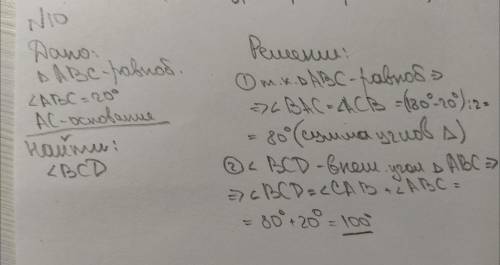 №10
Дано:
△ABC-равноб.
∠ABC=20°
AC-основание
Найти:
∠BCD
Решение:
① т.к. △ABC-равноб ⇒
⇒ ∠BAC=∠ACB=(180°-20°):2=
= 80° (сумма углов △)
② ∠BCD-внеш. угол △ABC ⇒
⇒ ∠BCD=∠CAB+∠ABC=
= 80°+20°=100°